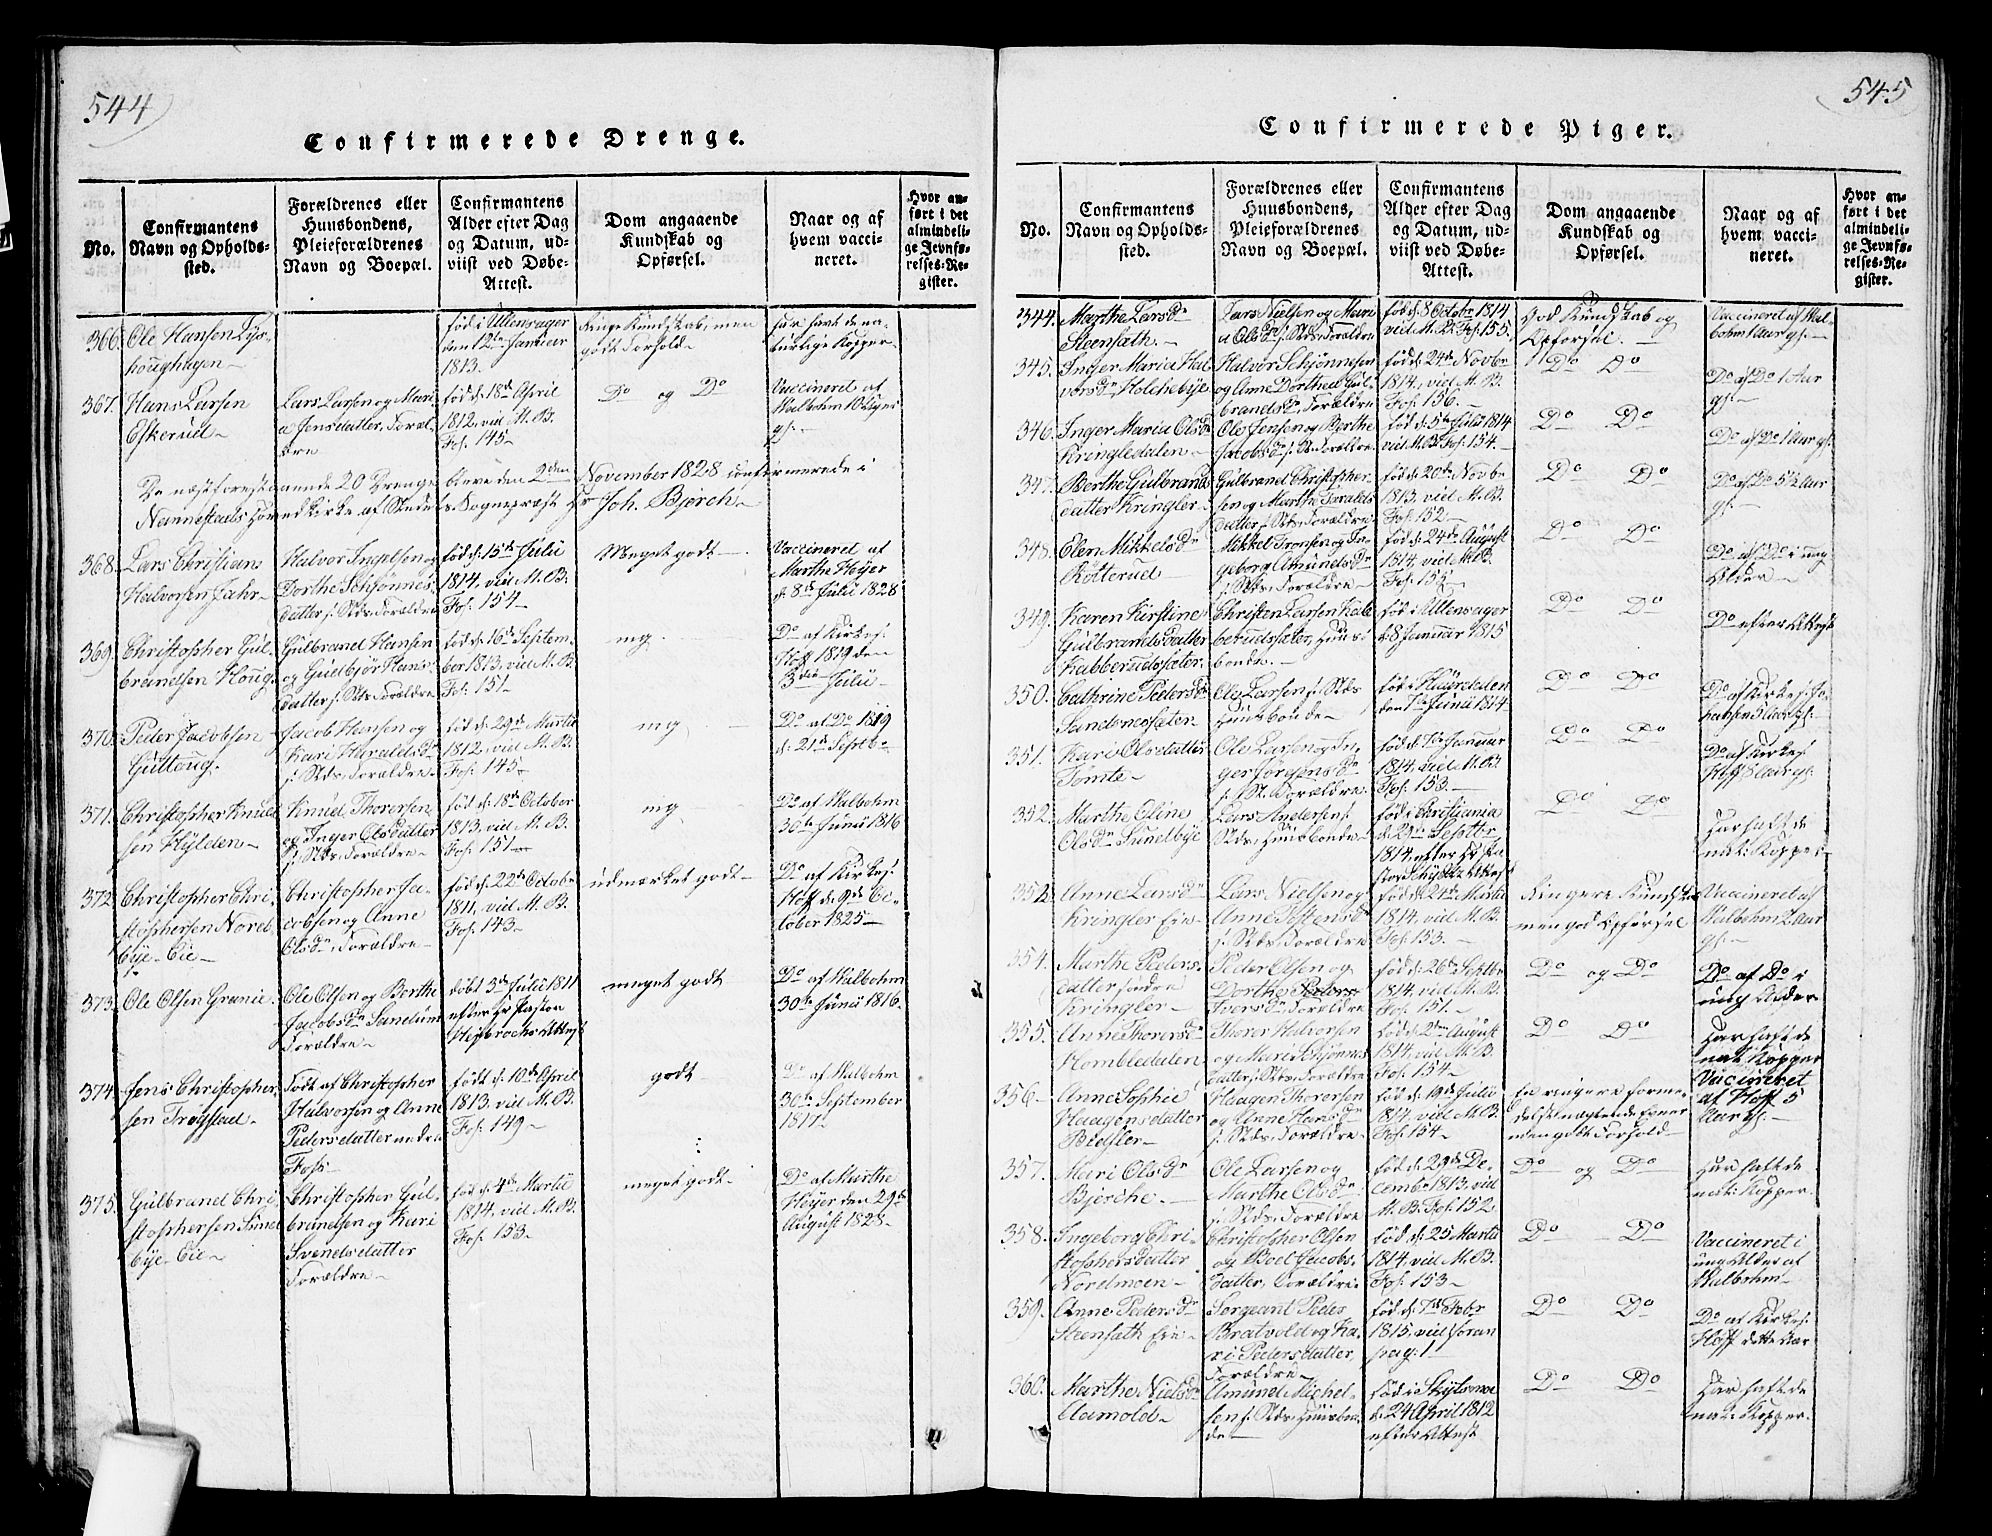 544
Confirmerede Drenge.
No.
Confirmantens
Navn og Opholds-
sted.
Forældrenes eller
Huusbondens,
Pleieforældrenes
Navn og Boepæl.
Confirmantens
Alder efter Dag
og Datum, ud-
viist ved Døbe-
Attest.
Dom angaaende
Kundskab og
Opførsel.
Naar og af
hvem vacci-
neret.
Hvor an-
ført i det
almindeli-
ge Jevnfø-
relses-Re-
gister.
366.
Ole Hansen Lys-
houghagen
født i Ullensager
den 12te Januar
1813.
Ringe Kundskab, men
godt Forhold
har havt de na-
turlige Kopper
367.
Hans Larsen
Eskerud
Lars Larsen og Mari-
a Jensdatter, Foræl-
dre
fød d: 18de April
1812, vid M.B.
Fol. 145
Do og Do
Vaccineret af
Walbohm
De næstforestaaende 20 Drenge bleve den 2den November 1828 confirmerede i
Nannestads Hovedkirke af Stedets Sognepræst Hr Joh. Bjørch
368.
Lars Christian
Halvorsen Jahr
Halvor Ingelsen og
Dorthe Schjønnes-
datter j: Stds, Forældre
fød d: 15de Julii
1814, vid M.B.
Fol. 154
Meget godt
Vaccineret af
Marthe Høyer
d: 8de Julii 1828
369.
Christopher Gul-
brandsen Houg
Gulbrand Hansen
og Guldbjør Hans-
datter j: Stds, Forældre
fød d: 16de Septem-
ber 1813, vid M.B.
Fol. 151
mg
Do af Kirkes:
Hoff 1819 den
3die Julii
370.
Peder Jacobsen
Guttoug
Jacob Hansen og
Kari Haraldsd:
j: Stds, Forældre
fød d: 29de Martii
1812, vid M.B.
Fol. 145
mg
Do af Do 1819
d: 21de Septb
371.
Christopher Knud-
sen Hylden
Knud Thorersen
og Inger Olsdatter
j: Stds, Forældre
fød d: 18de October
1813, vid M.B.
Fol. 151
mg
Do af Walbohm
30te Junii 1816
372.
Christopher Chri-
stophersen Noreb-
bye-Eie
Christopher Ja-
cobsen og Anne
Olsdr, Forældre
fød d: 22de Octobr
1811, vid M.B.
Fol. 143
udmærket godt
Do af Kirkes:
Hoff d: 9de Oc-
tober 1825
373.
Ole Olsen Grønie
Ole Olsen og Berthe
Jacobsdr Sandum
Forældre
døbt 3de Julii 1811
efter Hr Pastor
meget godt
Do af Walbohm
30te Junii 1816
374.
Jens Christopher-
sen Trøgstad
Født af Christopher
Halvorsen og Anne
Pedersdatter nedre
Foss
født d: 10de April
1813, vid M.B.
Fol. 149
godt
Do af Walbohm
30te September
1817
375.
Gulbrand Chri-
stophersen Sund-
bye-Eie
Christopher Gul-
brandsen og Kari
Svendsdatter
Forældre
fød d: 4de Martii
1814, vid M.B.
Fol. 153
meget godt
Do af Marthe
Høyer den 29de
August 1828
545
Confirmerede Piger.
No.
Confirmantens
Navn og Opholds-
sted.
Forældrenes eller
Huusbondens,
Pleieforældrenes
Navn og Boepæl.
Confirmantens
Alder efter Dag
og Datum, ud-
viist ved Døbe-
Attest.
Dom angaaende
Kundskab og
Opførsel.
Naar og af
hvem vacci-
neret.
Hvor an-
ført i det
almindeli-
ge Jevnfø-
relses-Re-
gister.
344.
Marthe Larsdr
Steensath
Lars Nielsen og Mari
Olsdr j: Stds, Forældre
fød d: 8 Octobr 1814
vid M.B. Fol. 155
God Kundskab og
Opførsel
Vaccineret af Wal-
bohm 1 Aar gl:
345.
Inger Maria Hal-
vorsdr Holchebye
Halvor Schjønnesen
og Anne Dorthea Gul-
brandsdr, Forældre
fød d: 24de Novbr
1814, vid M.B.
Fol. 156
Do Do
Do af Do 1 Aar
gl:
346.
Inger Maria Olsdr
Kringledalen
Ole Jensen og Berthe
Jacobsdr j: Stds, Forældre
fød d: 5te Julii 1814
vid M.B. Fol. 154
Do Do
Do af Do 1 Aar gl:
347.
Berthe Gulbrands-
datter Kringler
Gulbrand Christopher-
sen og Marthe Haralds-
datter j: Stds, Forældre
fød d: 20de Novbr
1813, vid M.B.
Fol. 152
Do Do
Do af Do 5½ Aar
gl:
348.
Elen Mikkelsdr
Rotterud
Mikkel Tronsen og In-
geborg Amundsdr
j: Stds, Forældre
fød d: 24de August
1814, vid M.B.
Fol. 155
Do Do
Do af Do i ung
Alder
349.
Karen Kirstine
Gulbrandsdatter
Kabberudsæter
Christen Larsen Kab-
berudsæter, Huus-
bonde.
fød i Ullensager
d: 8 Januar 1815
Do Do
Do efter Attest
350.
Cathrine Pedersdr
Sandenesæter
Ole Larsen j: Stds
Huusbonde
fød i Hurdalen
den 1te Junii 1814
Do Do
Do af Kirkes: Jo-
hansen 5 Aar gl:
351.
Kari Olsdatter
Tomte
Ole Larsen og In-
ger Jørgensdr
j: St. Forældre
fød d: 7de Januar
1814, vid M.B.
Fol. 153
Do Do
Do af Kirkes:
Hoff 8 Aar gl:
352.
Marthe Oline
Olsdr Sundbye
Lars Andersen j:
Stds, Huusbonde
fød i Christiania
d: 29de Septbr
1814, efter
Do Do
Har haft de
nat: Kopper
353.
Anne Larsdr
Kringler Eie
Lars Nielsen og
Anne Jostensdr
j: Stds, Forældre
fød d: 24de Martii
1814, vid M.B.
Fol. 153
Ringere Kundskab
men god Opførsel
Vaccineret af
Walbohm 2 Aar
gl:
354.
Marthe Peders-
datter søndre
Kringler
Peder Olsen og
Dorthe Peders
Iversdr, Forældre
fød d: 26de Septbr
1814, vid M.B.
Fol. 151
Do og Do
Do af Do i
ung Alder
355.
Anne Thorersdr
Hombledalen
Thorer Halvorsen
og Mari Schjønnes-
datter j: Stds, Forældre
fød d: 2den August
1814, vid M.B.
Fol. 154
Do Do
Har haft de
nat: Kopper
356
Anne Sophie
Haagensdatter
Bigler
Haagen Thorersen
og Anne Hansdr
j: Stds, Forældre
fød d: 19de Julii
1814, vid M.B.
Fol. 154
men godt Forhold
Vaccineret
af Hoff 5
Aar gl:
357.
Mari Olsdr
Bjerche
Ole Larsen og
Marthe Olsdr
j: Stds, Forældre
fød d: 29de De-
cembr 1813, vid
M.B. Fol. 152
Do og Do
Har haft de
nat: Kopper.
358.
Ingeborg Chri-
stophersdatter
Nordmoen
Christopher Olsen
og Boel Jacobs-
datter, Forældre
fød d: 25 Martii
1814, vid M.B.
Fol. 153
Do Do
Vaccineret i
ung Alder af
Walbohm
359.
Anne Pedersdr
Steensath Eie
Sergeant Peder
Bratvold og Ka-
ri Pedersdatter,
Forældre
fød d: 7de Febr
1815, vid foran
pag: 1
Do Do
Do af Kirkes:
Hoff dette Aar
360.
Marthe Nielsdr
Aamold
Amund Michel-
sen j: Stds, Huusbon-
de
fød i Skjesmoe
d: 24 April 1812
efter Attest
Do Do
Har haft de
nat: Kopper.